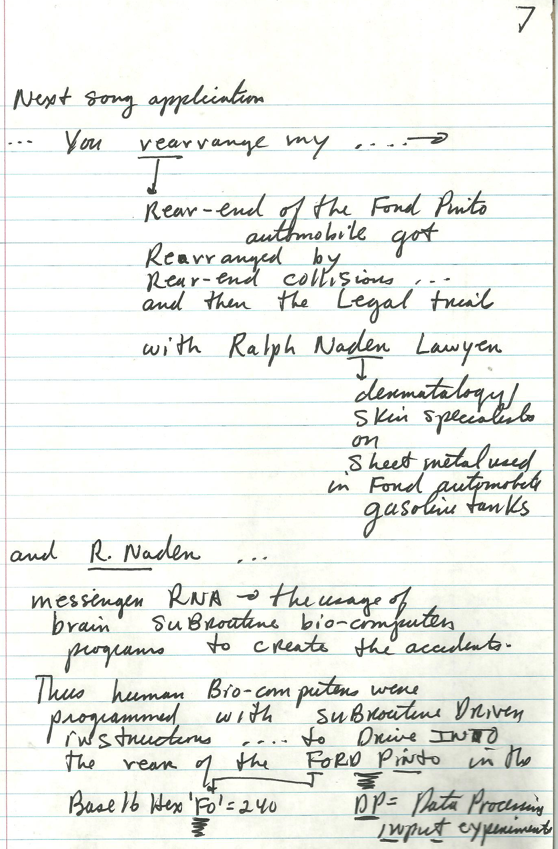 7
Next song application
... You rearrange my .... →
Rear-end of the Ford Pinto
automobile got
Rearranged by
Rear-end collisions ...
and then the Legal trial
with Ralph Nader Lawyer
dermatology/
Skin specialists
on
Sheet metal used
in Ford automobile
gasoline tanks
and R. Nader ...
messenger RNA → the usage of
brain SUBROUTINE bio-computer
programs to create the accidents.
Thus human Bio-computers were
programmed with SUBROUTINE DRIVER
instructions .... to Drive INTO
the rear of the FORD PINTO in the
Base 16 Hex 'FO' = 240
DP = Data Processing
input experiments